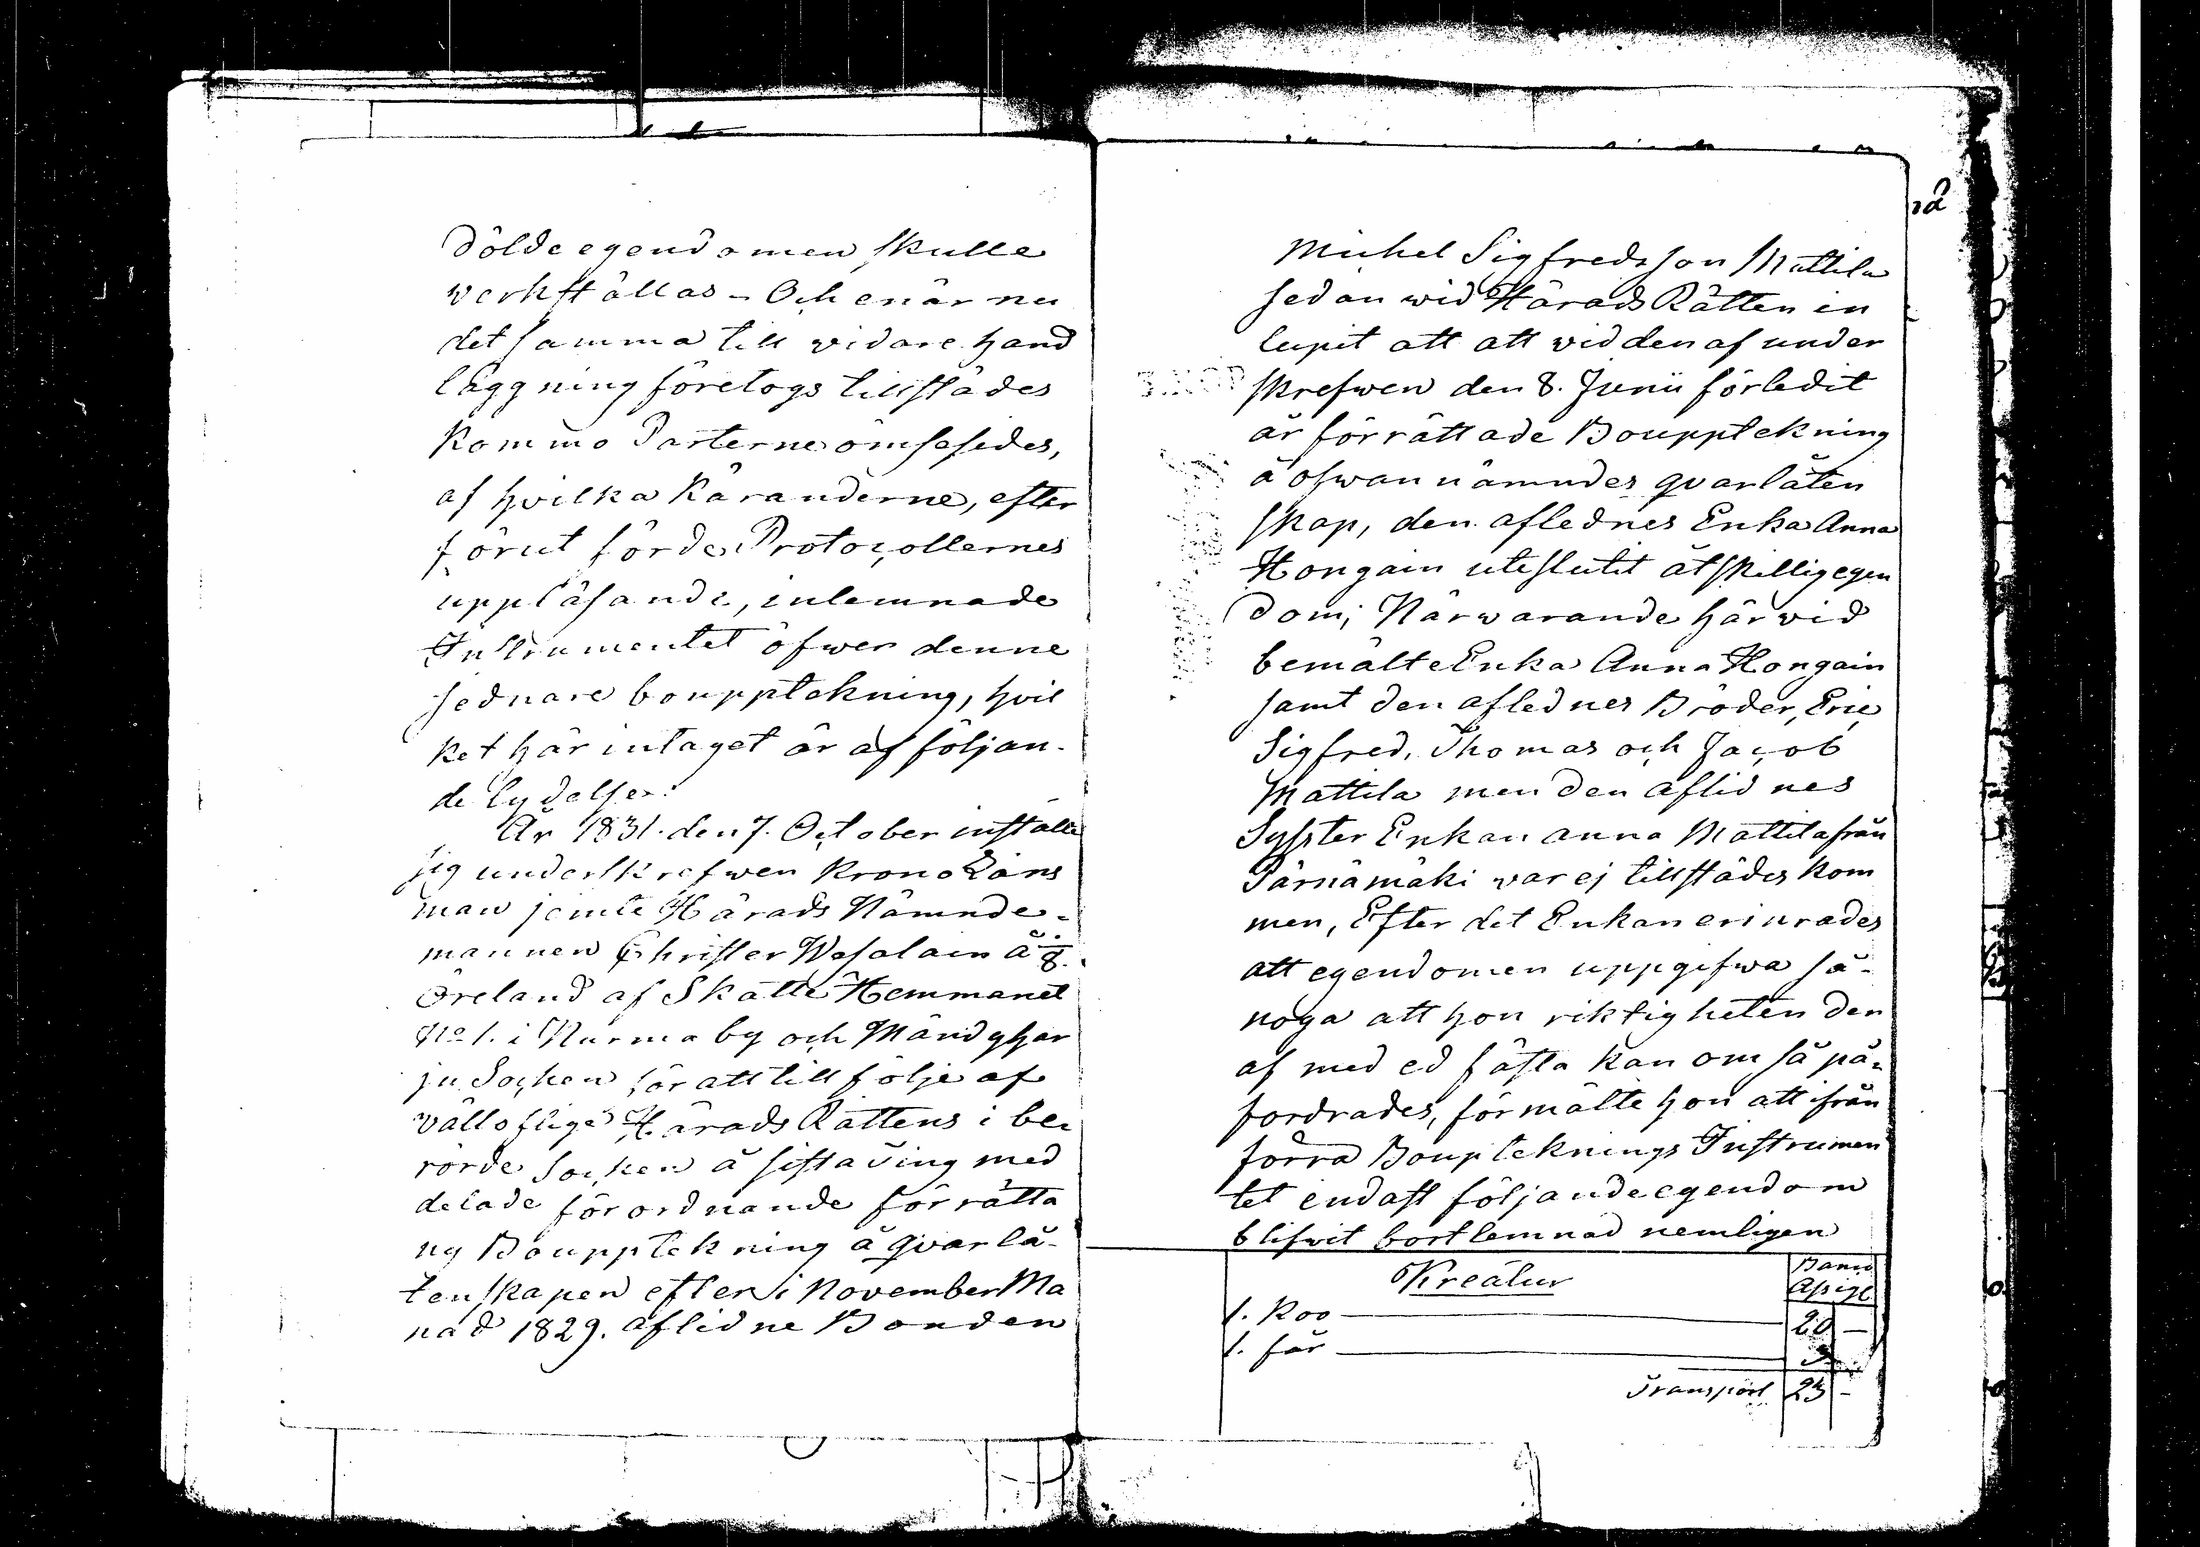 dölde egendomen skulle
werkställas – Och enär nu
det samma till vidare hand
läggning företogs tillstädes
kommo Parterne ömsesides,
af hvilka Käranderne, efter
förut förde Protocollernes
uppläsande, inlemnade
Instrumentet öfwer denne
sednare bouppteckning, hvil
ket här intaget är af följan-
de lydelse:
År 1831. den 7. October instälte
sig underskrefwen Krono Läns
man jemte Härads Nämnde-
mannen Christer Wesalain å
Öreland af Skatte Hemmanet
No 1. i Nurma by och Mändyhar
ju Socken för att till följe af
välloflige Härads Rättens i be-
rörde Socken å sista Ting med
delade förordnande förrätta
ny Bouppteckning å qvarlå-
tenskapen efter i November Må
nad 1829. aflidne Bonden
12
Michel Sigfredsson Mattila
sedan wid Härads Rätten in
lupit att att vid den af under
skrefwen den 8. Junii förledit
år förrättade Bouppteckning
å ofwannämndes qvarlåten
skap, den aflednes Enka Anna
Hongain uteslutit åtskillig egen
dom; Närwarande härvid
bemälte Enka Anna Hongain
samt den aflednes Bröder, Eric
Sigfred, Thomas och Jacob
Mattila men den aflidnes
Syster Enkan Anna Mattila från
Pärnämäki var ej tillstädes kom
men, Efter det Enkan erinrades
att egendomen uppgifwa så-
noga att hon riktigheten der
af med ed fästa kan om så på-
fordrades, förmälte hon att ifrån
förra Bouptecknings Instrumen
tet endast följande egendom
blifwit bortlemnad nemligen
Kreatur
Banco
Assigt
1. Koo 20 –
1. får 3
Transport 23 –